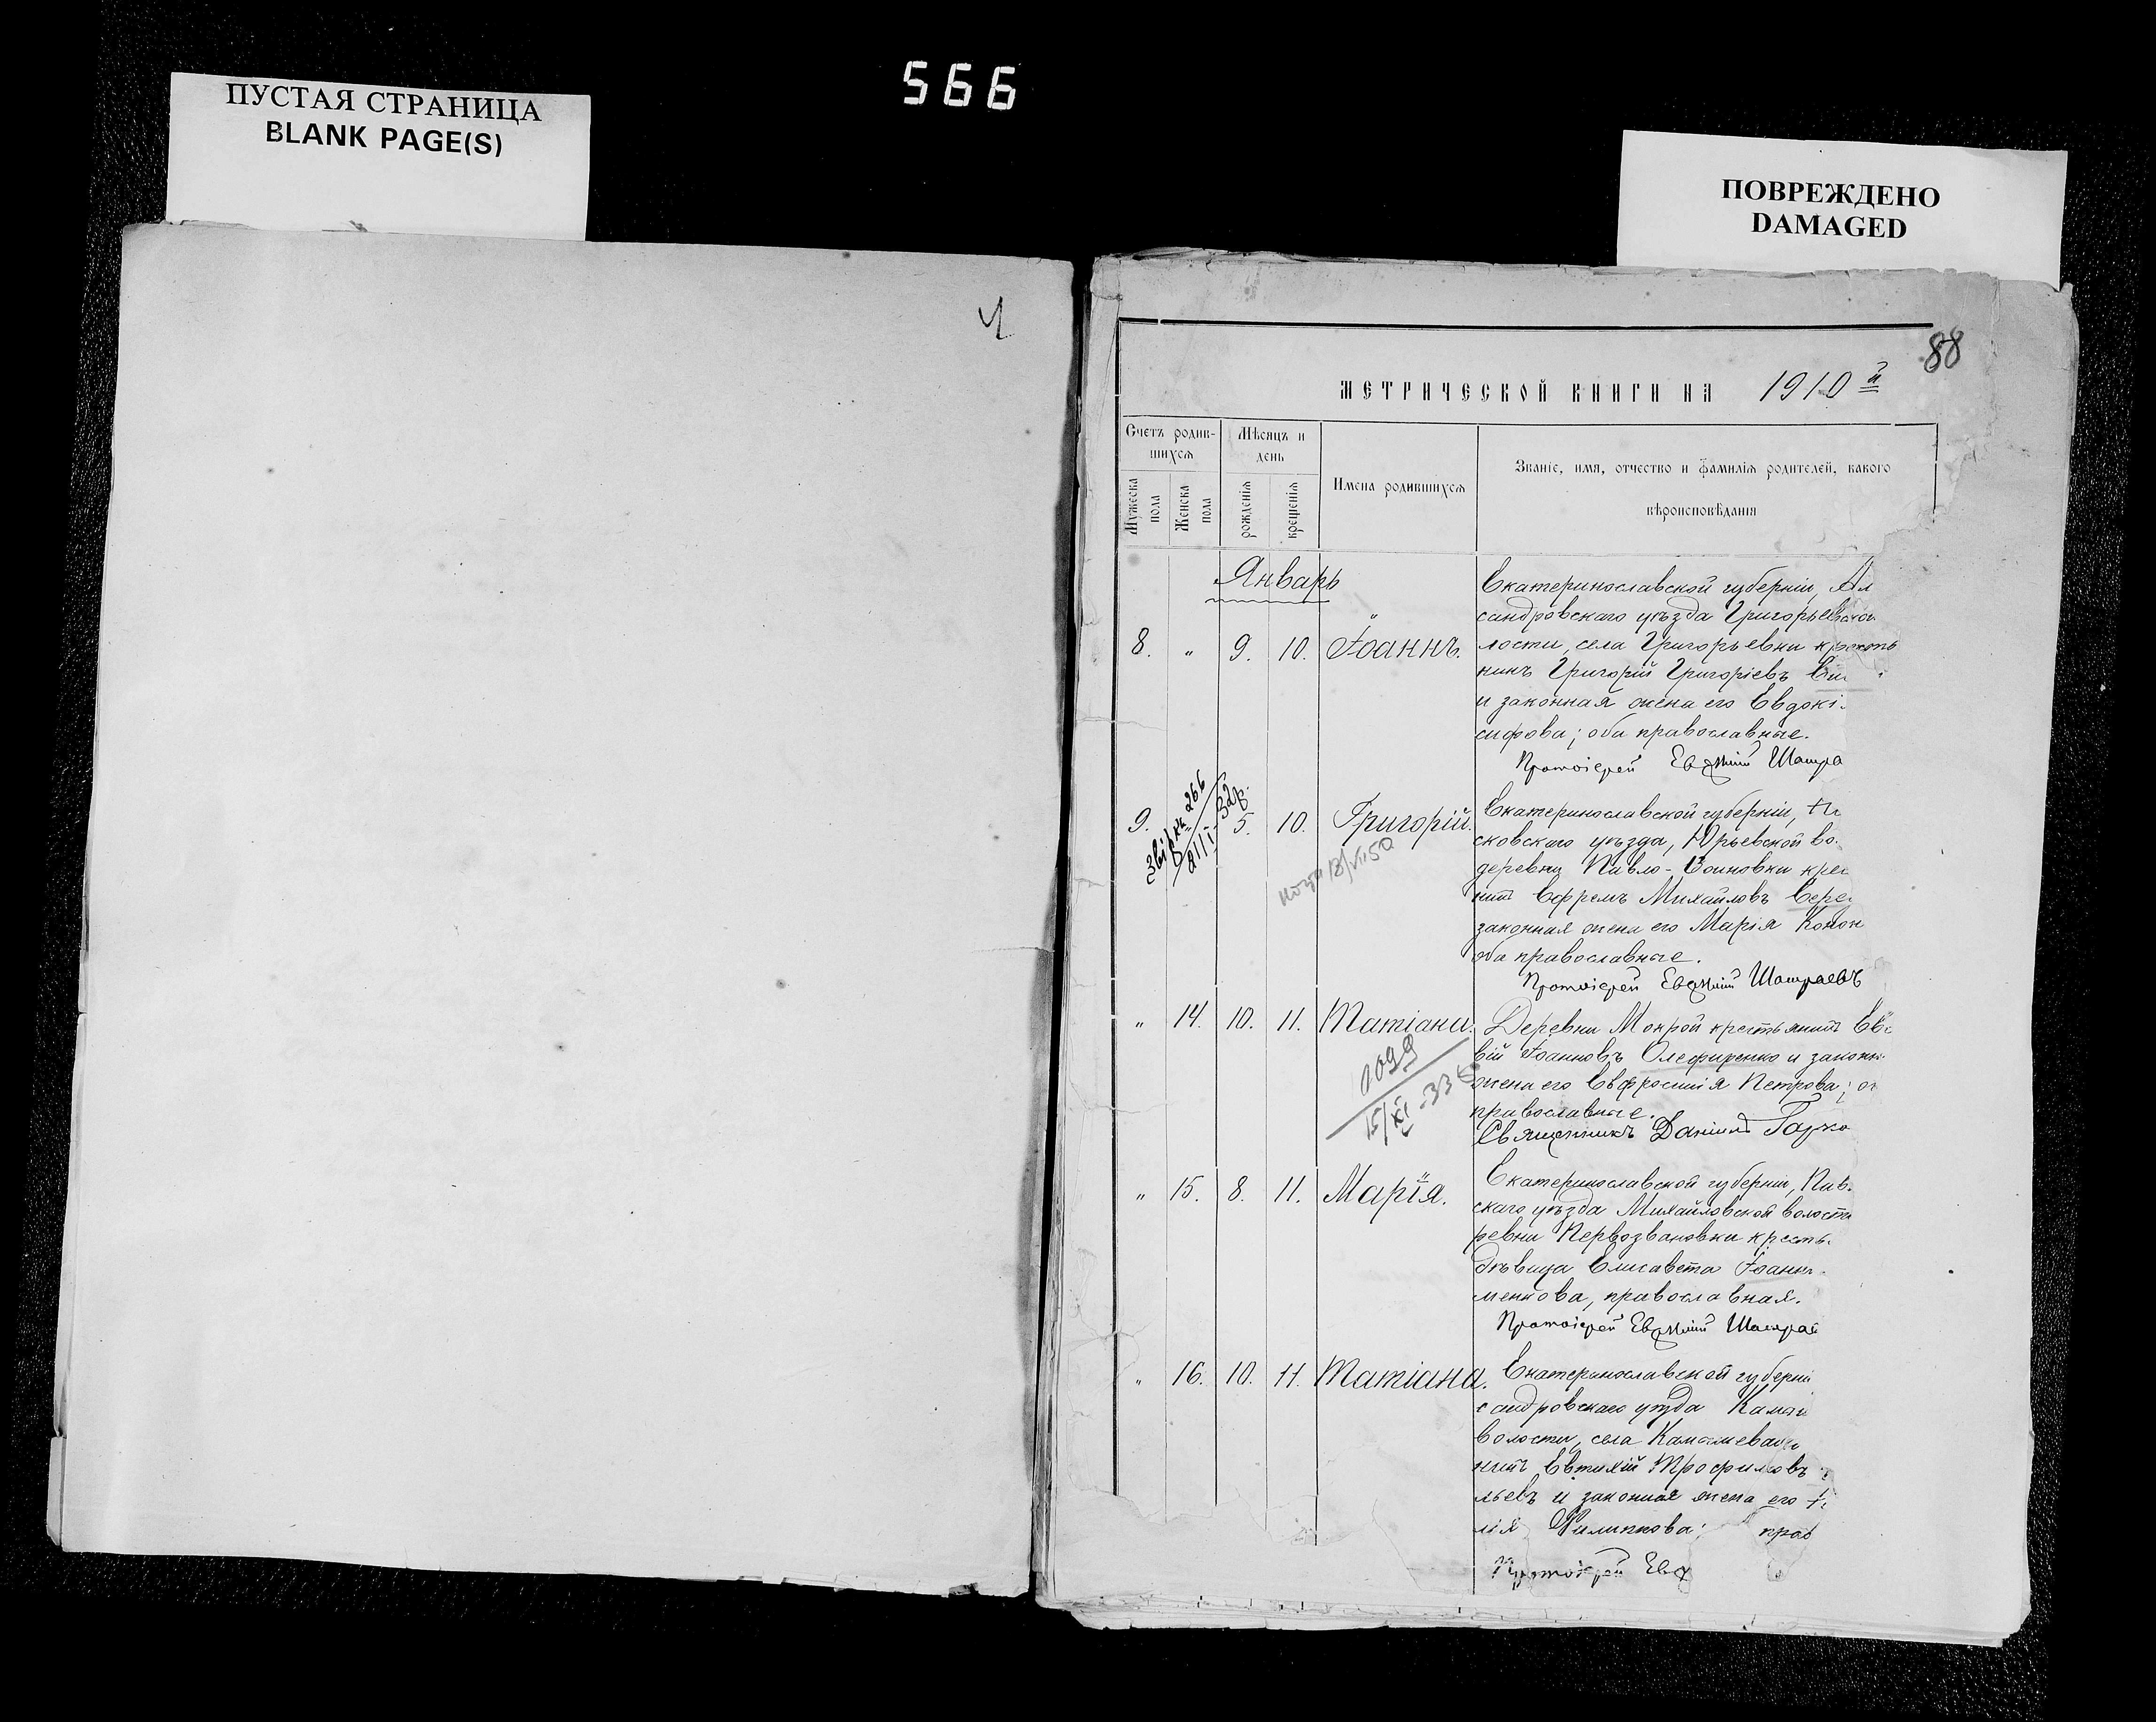 566
ПУСТАЯ СТРАНИЦА
BLANK PAGE(S)
ПОВРЕЖДЕНО
DAMAGED
88
МЕТРИЧЕСКОЙ КНИГИ НА 1910й
Счетъ родив-
шихся
Мѣсяцъ и
день
Имена родившихся
Званіе, имя, отчество и фамилія родителей, какого
вѣроисповѣданія
Мужеска
пола
Женска
пола
рожденія
крещенія
Январь
Екатеринославской губерніи, Ал
сандровскаго уѣзда Григорьевской
8. " 9. 10. Іоаннъ. лости, села Григорьевки крестья
нинъ Григорій Григоріевъ
и законная жена его Евдокі
сифова; оба православные.
Протоіерей Евѳимій
9. 5. 10. Григорій. Екатеринославской губерніи,
сковскаго уѣзда, Юрьевской во
деревни Павло-Воиновки крес
нинъ Ефремъ Михайловъ Сере
законная жена его Марія Конон
оба православные.
Протоіерей Евѳимій
266
1099
" 14. 10. 11. Татіана. Деревни Мокрой крестьянинъ Ев
вій Іоанновъ Олефиренко и законн
жена его Евфросинія Петрова; о
православные.
Священникъ Даніилъ
" 15. 8. 11. Марія. Екатеринославской губерніи, Пав
скаго уѣзда Михайловской волости
ревни Первозвановки кресть
дѣвица Елисавета Іоанн
менкова, православная.
Протоіерей Евѳимій
" 16. 10. 11. Татіана. Екатеринославской губерні
сандровскаго уѣзда Камы
волости, села Камышева
нинъ Евтихій Трофимовъ
льевъ и законная жена его
лія Филиппова; прав
Протоіерей Евѳ